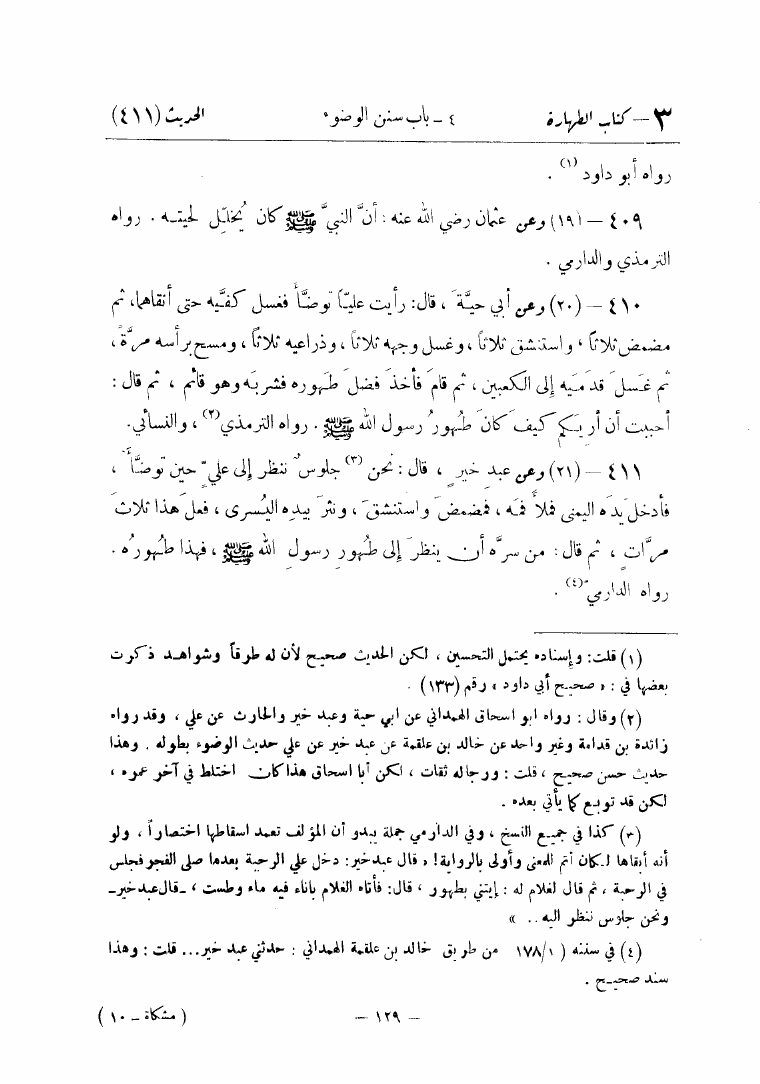 ٣ – كتاب الطهارة ٤ - باب سنن الوضوء الحديث (٤١١)
رواه أبو داود (١) .
٤٠٩ – (١٩) وعن عثمان رضي الله عنه : أنَّ النبيَّ ﷺ كان يُخَلِّل لحيتـه . رواه
الترمذي والدارمي .
٤١٠ – (٢٠) وعن أبي حيَّةَ ، قال: رأيت عليّاً توضَّأَ فغسل كفَّيه حتى أنقاهما، ثم
مضمض ثلاثاً ، واستنشق ثلاثاً ، وغسل وجهه ثلاثاً ، وذراعيه ثلاثاً ، ومسح برأسه مرَّةً ،
ثم غسلَ قدمَيه إلى الكعبين ، ثم قامَ فأخذَ فضلَ طَهوره فشربَه وهو قائم ، ثم قال :
أحببت أن أريَكم كيفَ كانَ طُهورُ رسول الله ﷺ . رواه الترمذي(٢) ، والنسائي.
٤١١ – (٢١) وعن عبد خيرٍ ، قال : نحن (٣) جلوسٌ ننظر إلى عليٍّ حين توضَّأَ ،
فأدخل يدَه اليمنى فملأَ فمَه ، فمضمضَ واستنشقَ ، ونثرَ بيدِه اليُسرى ، فعلَ هذا ثلاثَ
مرَّاتٍ ، ثم قال : من سرَّه أن ينظرَ إلى طُهورِ رسولِ الله ﷺ ، فهذا طُهورُه .
رواه الدارميّ(٤) .
(١) قلت: وإسناده يحتمل التحسين ، لكن الحديث صحيح لأن له طرقاً وشواهـد ذكرت
بعضها في : « صحيح أبي داود » رقم (١٣٣) .
(٢) وقال : رواه ابو اسحاق الهمداني عن ابي حية وعبد خير والحارث عن علي ، وقد رواه
زائدة بن قدامة وغير واحد عن خالد بن علقمة عن عبد خير عن علي حديث الوضوء بطوله . وهذا
حديث حسن صحيح ، قلت : ورجاله ثقات ، لكن أبا اسحاق هذا كان اختلط في آخر عمره ،
لكن قد توبع كما يأتي بعده .
(٣) كذا في جميع النسخ ، وفي الدارمي جملة يبدو أن المؤلف تعمد اسقاطها اختصاراً ، ولو
أنه أبقاها لكان أتم للمعنى وأولى بالرواية! « قال عبدخير: دخل علي الرحبة بعدما صلى الفجر فجلس
في الرحبة ، ثم قال لغلام له : إيتني بطهور ، قال: فأتاه الغلام بإناء فيه ماء وطست ، -قال عبدخير-
ونحن جلوس ننظر اليه . . »
(٤) في سننه ( ١٧٨/١ من طريق خالد بن علقمة الهمداني : حدثني عبد خير... قلت : وهذا
سند صحيـح .
– ١٢٩ – ( مشكاة - ١٠ )